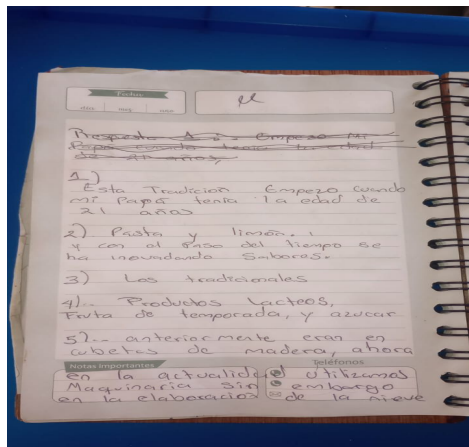 Fecha:
día mes año
Respuesta 1.- Empezo mi
Papá cuando tenia la edad
de 21 años,
1)
Esta Tradicion Empezo cuando
mi Papá tenia la edad de
21 años
2) Pasta y limón.
y con el paso del tiempo se
ha inovandando Sabores.
3) Los tradicionales
4).- Productos Lacteos,
Fruta de temporada, y azucar
5).- anteriormente eran en
cubetas de madera, ahora
Notas Importantes Teléfonos
en la actualidad utilizamos
Maquinaria Sin embargo
en la elaboracios de la nieve